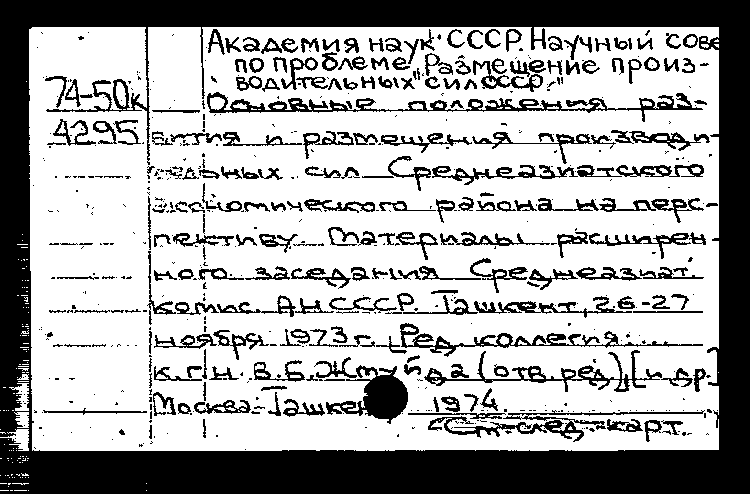 Академия наук СССР. Научный сове
по проблеме "Размещение произ-
водительных сил СССР."
74-50к Основные положения раз-
4295 вития и размещения производи-
тельных сил Среднеазиатского
экономического района на перс-
пективу. Материалы расширен-
ного заседания Среднеазиат.
комис. АН СССР. Ташкент, 26-27
ноября 1973 г. [Ред. коллегия: ...
к.г.н. В.Б. (отв. ред.), [и др.]
Москва-Ташкен 1974.
См. след. карт.